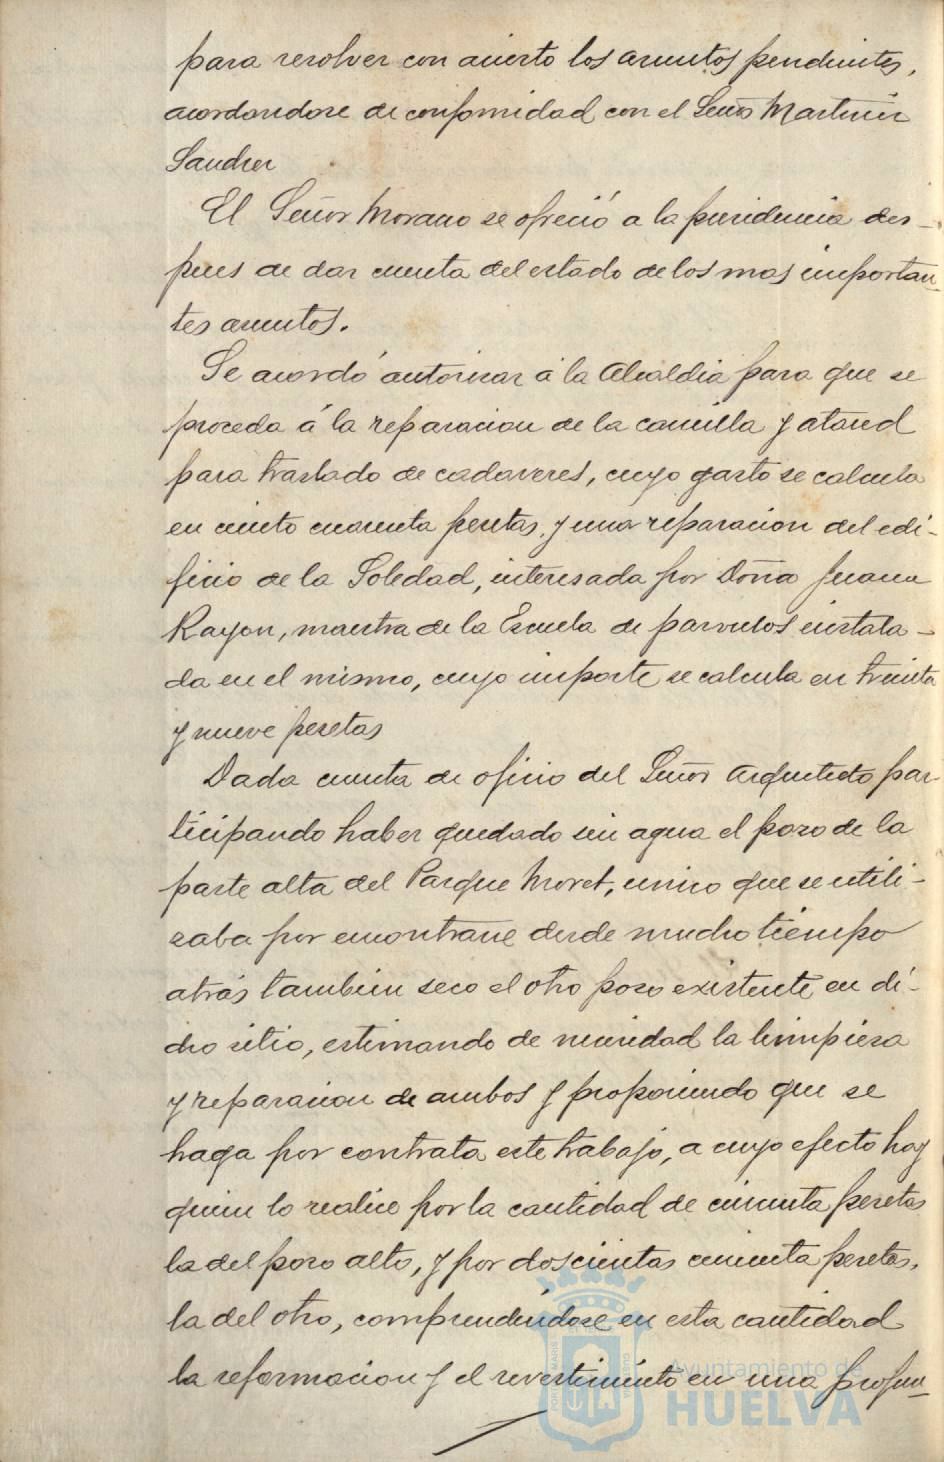 para resolver con acierto los asuntos pendientes,
acordandose de conformidad con el Señor Martinez
Sanchez
El Señor Morano se ofreció a la presidencia des-
pues de dar cuenta del estado de los mas importan-
tes asuntos.
Se acordó autorizar á la Alcaldia para que se
proceda á la reparacion de la camilla y ataud
para traslado de cadaveres, cuyo gasto se calcula
en ciento cuarenta pesetas, y una reparacion del edi-
ficio de la Soledad, interesada por Doña Juana
Rayon, maestra de la Escuela de parvulos instala-
da en el mismo, cuyo importe se calcula en treinta
y nueve pesetas
Dada cuenta de oficio del Señor Arquitecto par-
ticipando haber quedado sin agua el pozo de la
parte alta del Parque Moret, unico que se utili-
zaba por encontrarse desde mucho tiempo
atrás tambien seco el otro pozo existente en di-
cho sitio, estimando de necesidad la limpieza
y reparacion de ambos y proponiendo que se
haga por contrata este trabajo, a cuyo efecto hay
quien lo realice por la cantidad de cincuenta pesetas
la del pozo alto, y por doscientas cincuenta pesetas,
la del otro, comprendiendose en esta cantidad
la reformacion y el revestimiento en una profun-
Ayuntamiento de
HUELVA